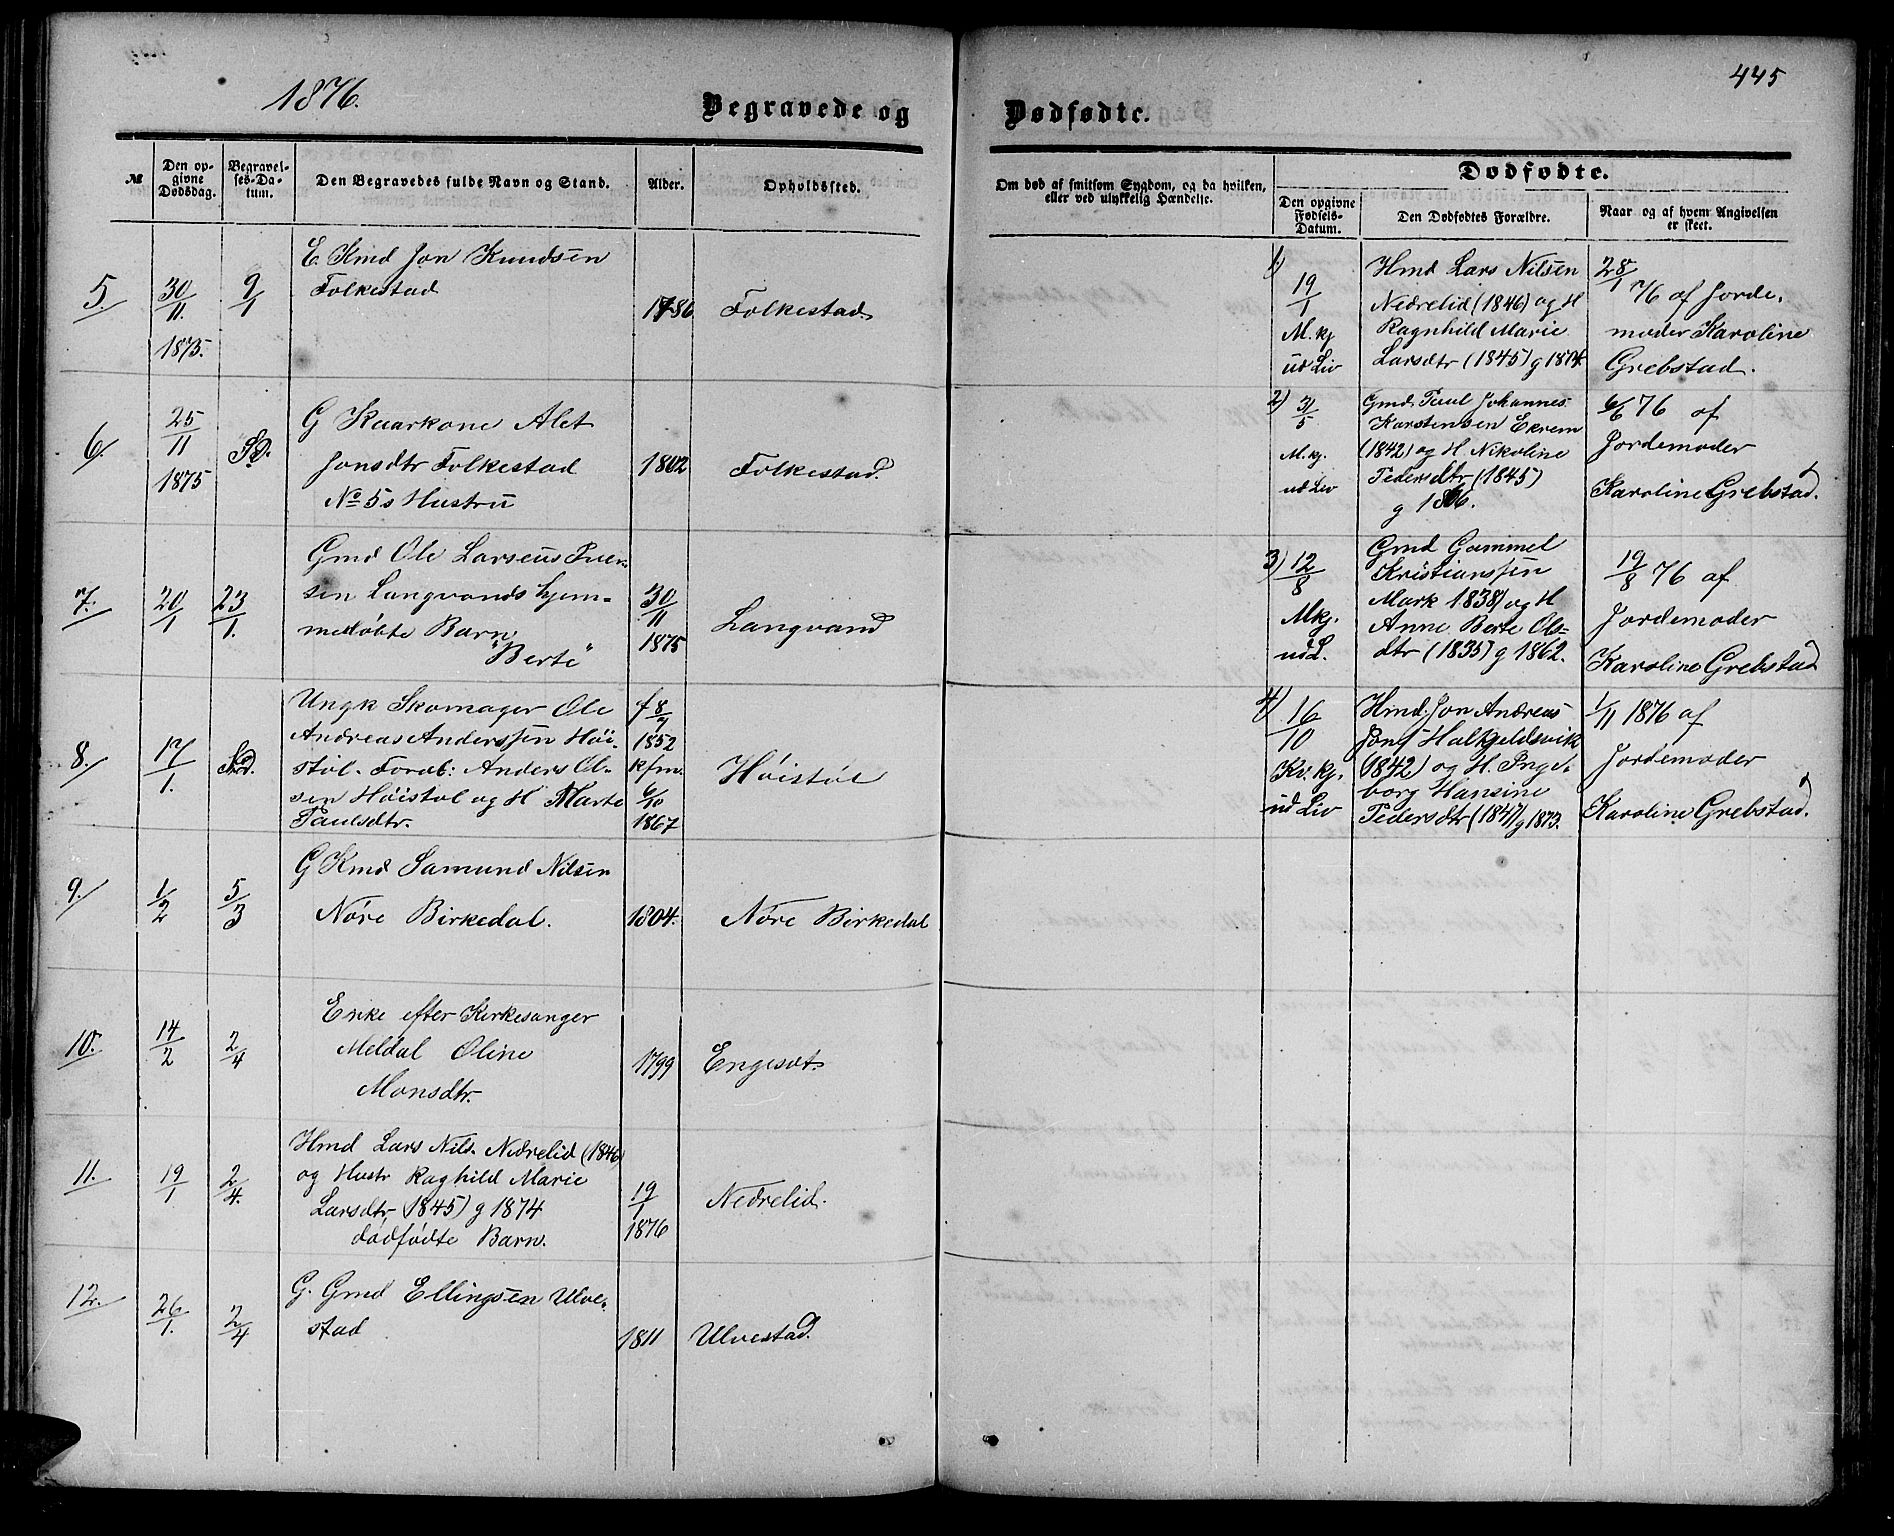 1876.
Begravede og
Dødfødte.
445
№
Den opgivne Dødsdag.
Begravelses-Datum.
Den Begravedes fulde Navn og Stand.
Alder.
Opholdssted.
Om død af smitsom Sygdom, og da hvilken, eller ved ulykkelig Hændelse.
Dødfødte.
Den opgivne Fødsels-Datum.
Den Dødfødtes Forældre.
Naar og af hvem Angivelsen er skeet.
5.
30/11.
1875.
9/1
E. Kmd Jon Knudsen
Folkestad
1786
Folkestad
6.
25/11
1875
S.D.
G Kaarkone Alet
Jonsdtr Folkestad
No 5s Hustru
1802
Folkestad
7.
20/1
23/1.
Gmd Ole Larseus Iver-
sen Langvands hjem-
medøbte Barn
"Berte"
30/11
1875
Langvand
8.
17/1.
S.d.
Ungk Skomager Ole
Andreas Anderssen Høi-
støl. Foræl: Anders Ol-
sen Høistøl og H Marte
Paulsdtr.
f 8/7
1852
kfm.
6/10
1867
Høistøl
9.
1/2
5/3
G Kmd Samund Nilsen
Nøre Birkedal.
1804.
Nøre Birkedal
10.
14/2
2/4
Enke efter Kirkesanger
Meldal Oline
Monsdtr.
1799
Engeset.
11.
19/1
2/4.
Hmd Lars Nils. Nedrelid (1846)
og Hustr Raghild Marie
Larsdtr (1845) g 1874
dødfødte Barn.
19/1
1876
Nedrelid.
12.
26/1.
2/4
G. Gmd Ellingsen Ulve-
stad
1811
Ulvestad.
1)
19/1
M.kj
ud Liv
Hmd Lars Nilsen
Nedrelid (1846) og H
Ragnhild Marie
Larsdtr (1845) g 1874.
28/1 76 af Jorde-
moder Karoline
Grebstad.
2)
3/5
M.kj.
ud Liv
Gmd. Paul Johannes
Karstensen Ekrem
(1842) og H. Nikoline
Pedersdtr (1845)
g 1866.
6/6 76 af
Jordemoder
Karoline Grebstad.
3)
12/8
Mkj.
ud L.
Gmd Gammel
Kristianssen
Mork 1838) og H
Anne Berte Ols-
dtr (1835) g 1862.
19/8 76 af
Jordemoder
Karoline Grebstad
4)
16/10
Kv. kj.
ud Liv
Hmd. Jon Andreas
Jons Halkjeldsvik
(1842) og H. Inge-
borg Hansine
Pedersdtr (1847) g 1873.
1/11 1876 af
Jordemoder
Karoline Grebstad.